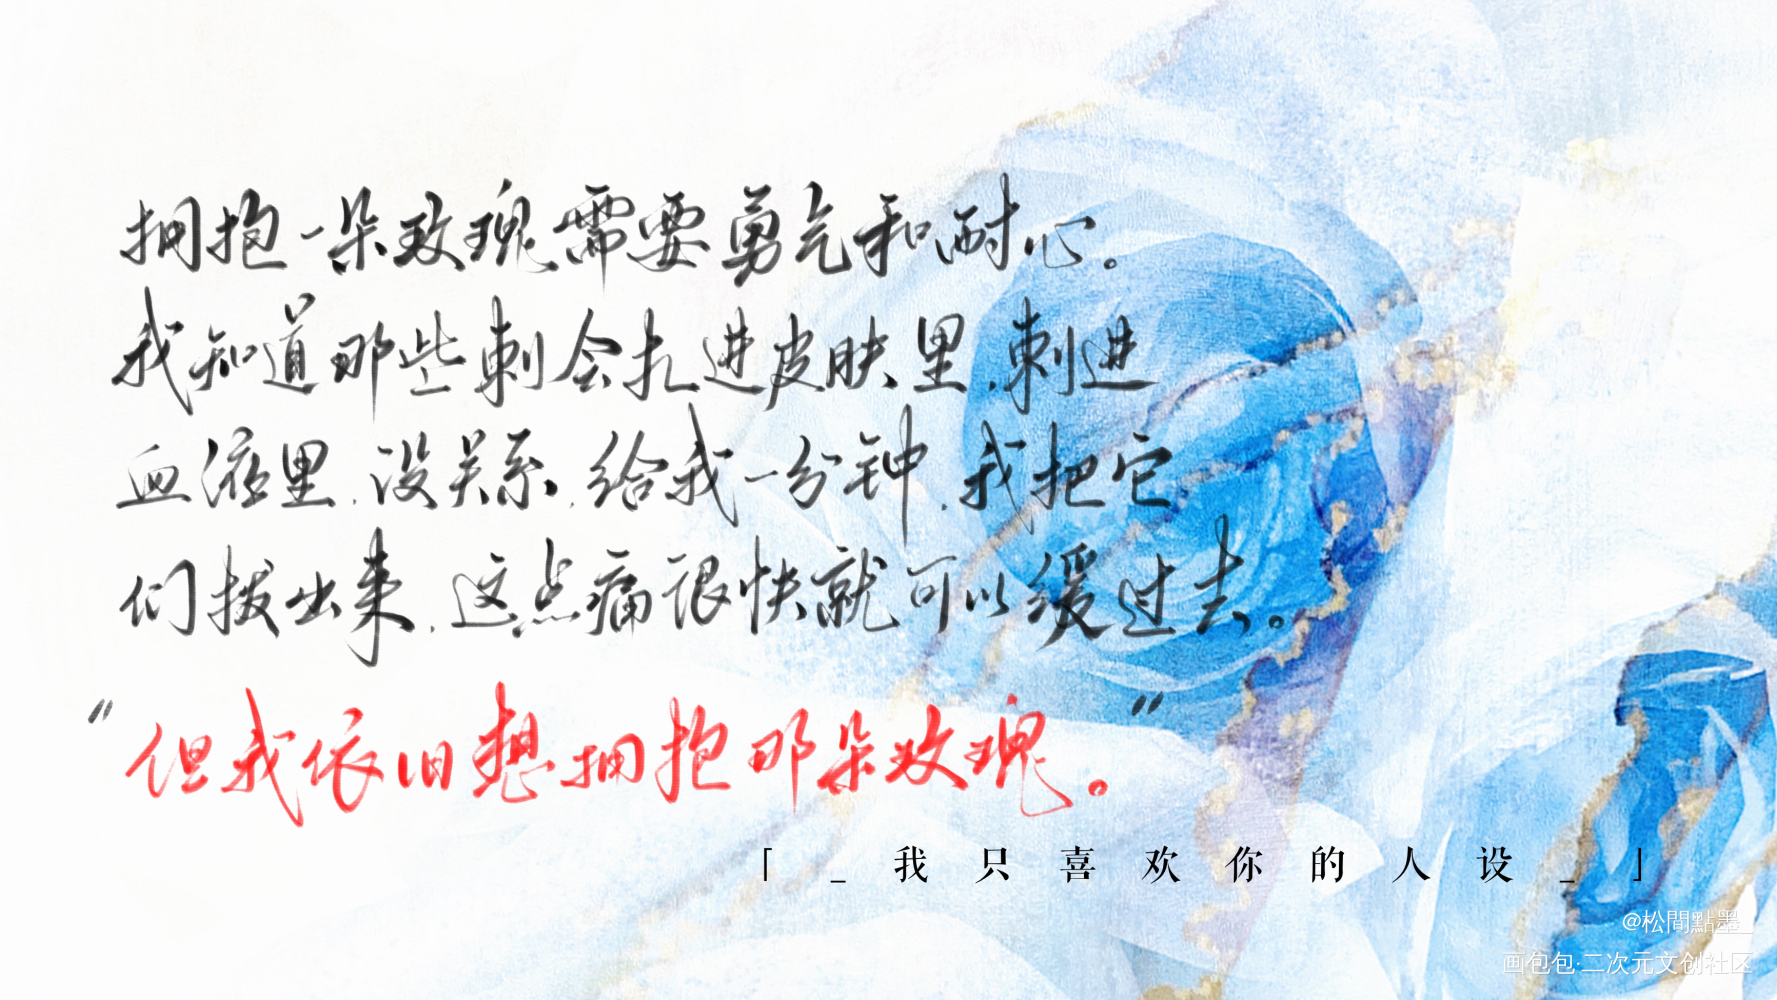 拥抱一朵玫瑰需要勇气和耐心。
我知道那些刺会扎进皮肤里,刺进
血液里,没关系,给我一分钟,我把它
们拔出来,这点痛很快就可以缓过去。
"但我依旧想拥抱那朵玫瑰。"
「_我只喜欢你的人设_」
@松間點墨_
画包包·二次元文创社区